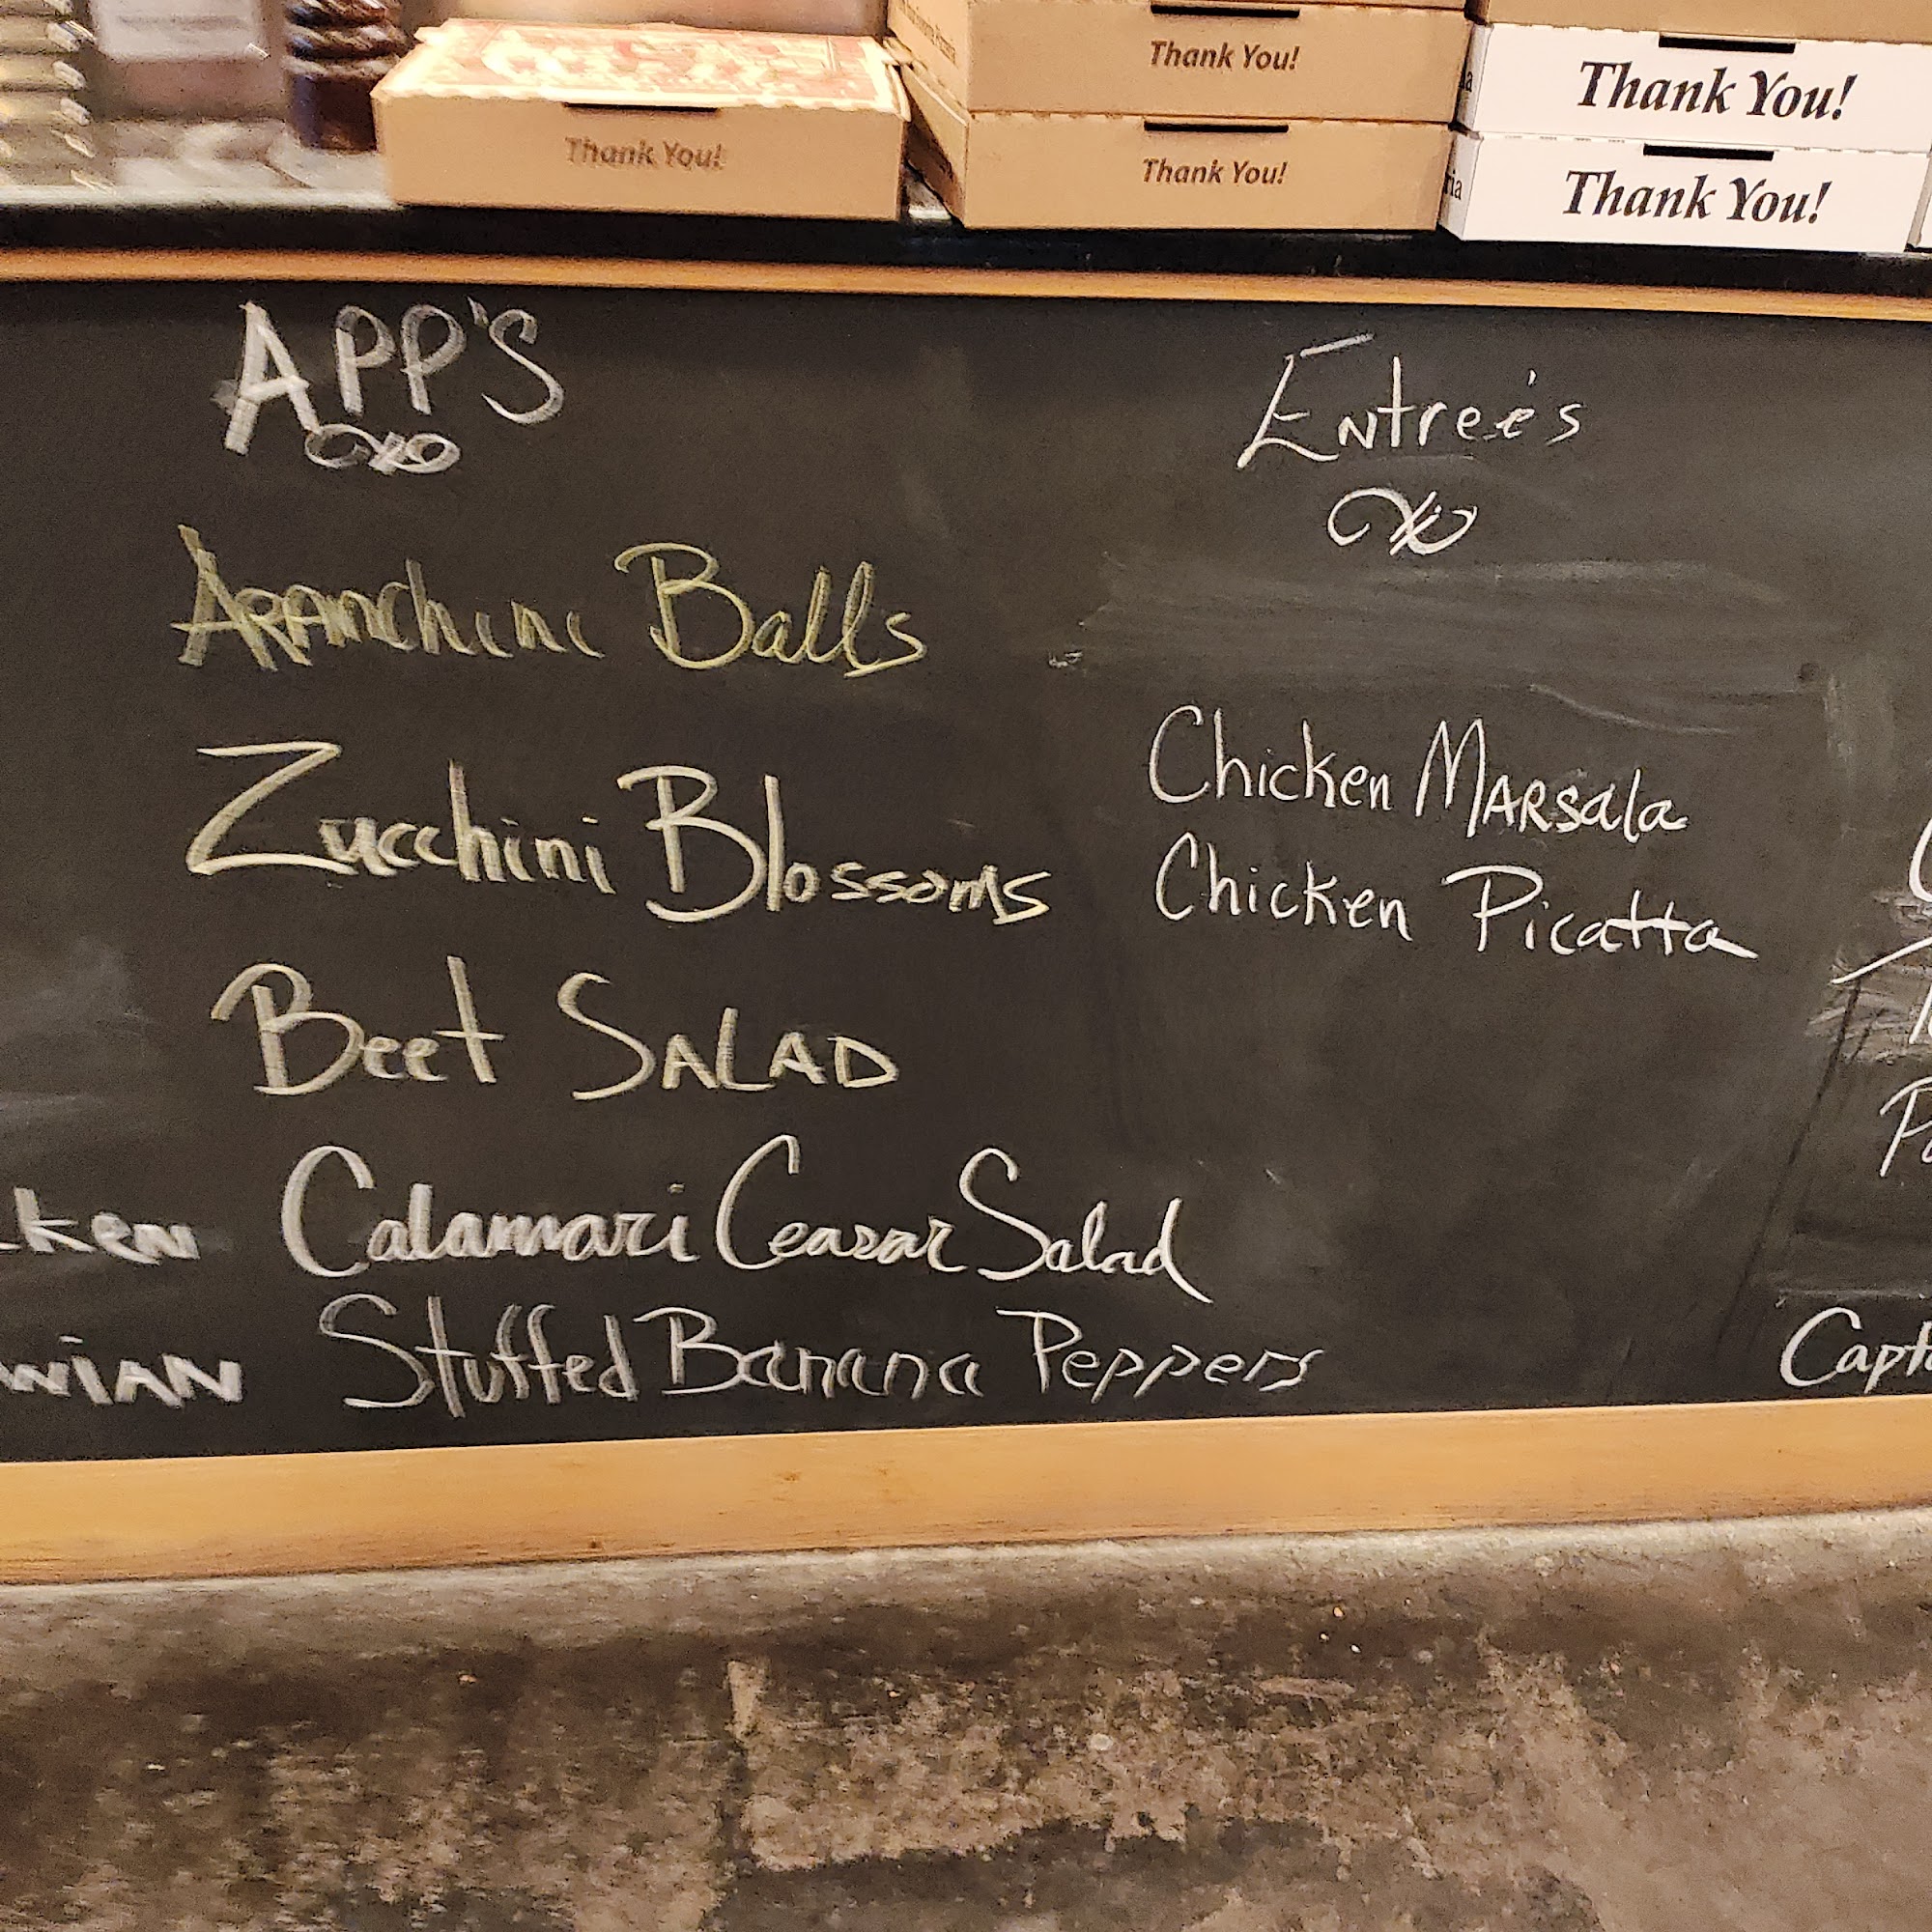 Thank You!
Thank You!
Thank You!
Thank You!
Thank You!
APP'S
Aranchini Balls
Zucchini Blossoms
Beet SALAD
Calamari Ceasar Salad
Stuffed Banana Peppers
Entreé's
Chicken MARSala
Chicken Picatta